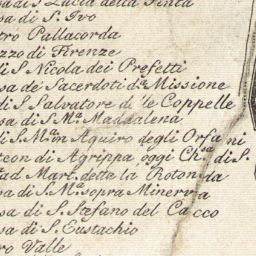 sa di S. Lucia della Tinta
sa di S. Ivo
tro Pallacorda
zzo di Firenze
di S. Nicola dei Prefetti
sa de' Sacerdoti d.a Missione
di S. Salvatore di le Coppelle
sa di S. M.a Maddalena
di S. M.a in Aquiro degli Orfani
teon di Agrippa, oggi Ch.a di S.
ad Mart. detta la Rotonda
sa di S. M.a sopra Minerva
sa di S. Stefano del Cacco
sa di S. Eustachio
ro Valle